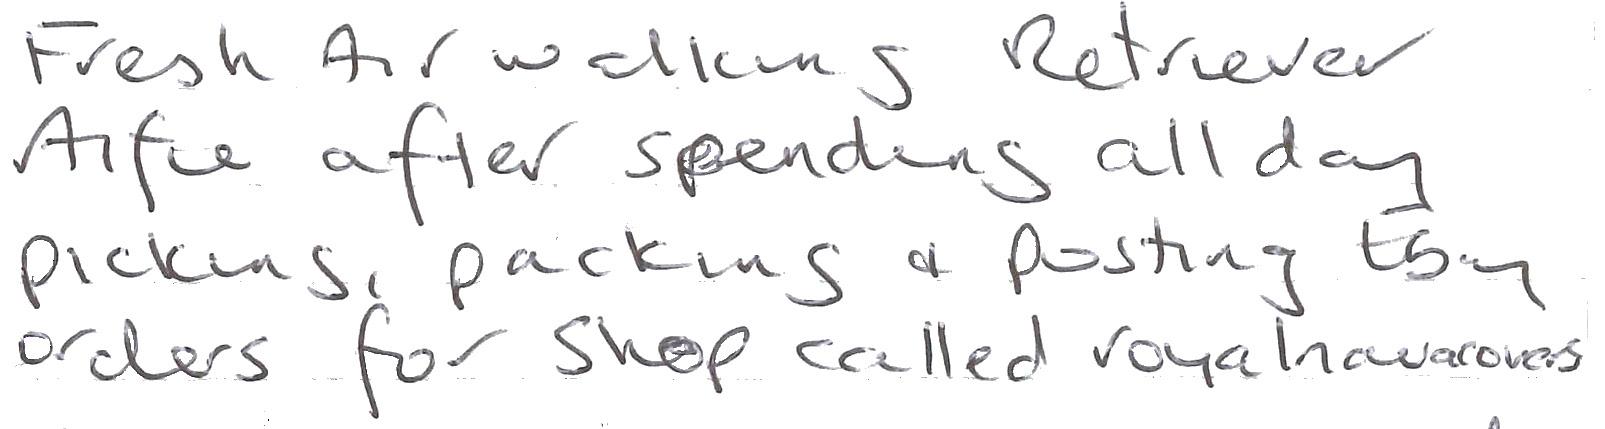 Fresh Air walking Retriever
Alfie after spending all day
picking, packing & posting Ebay
orders for Shop called royalnavalcovers